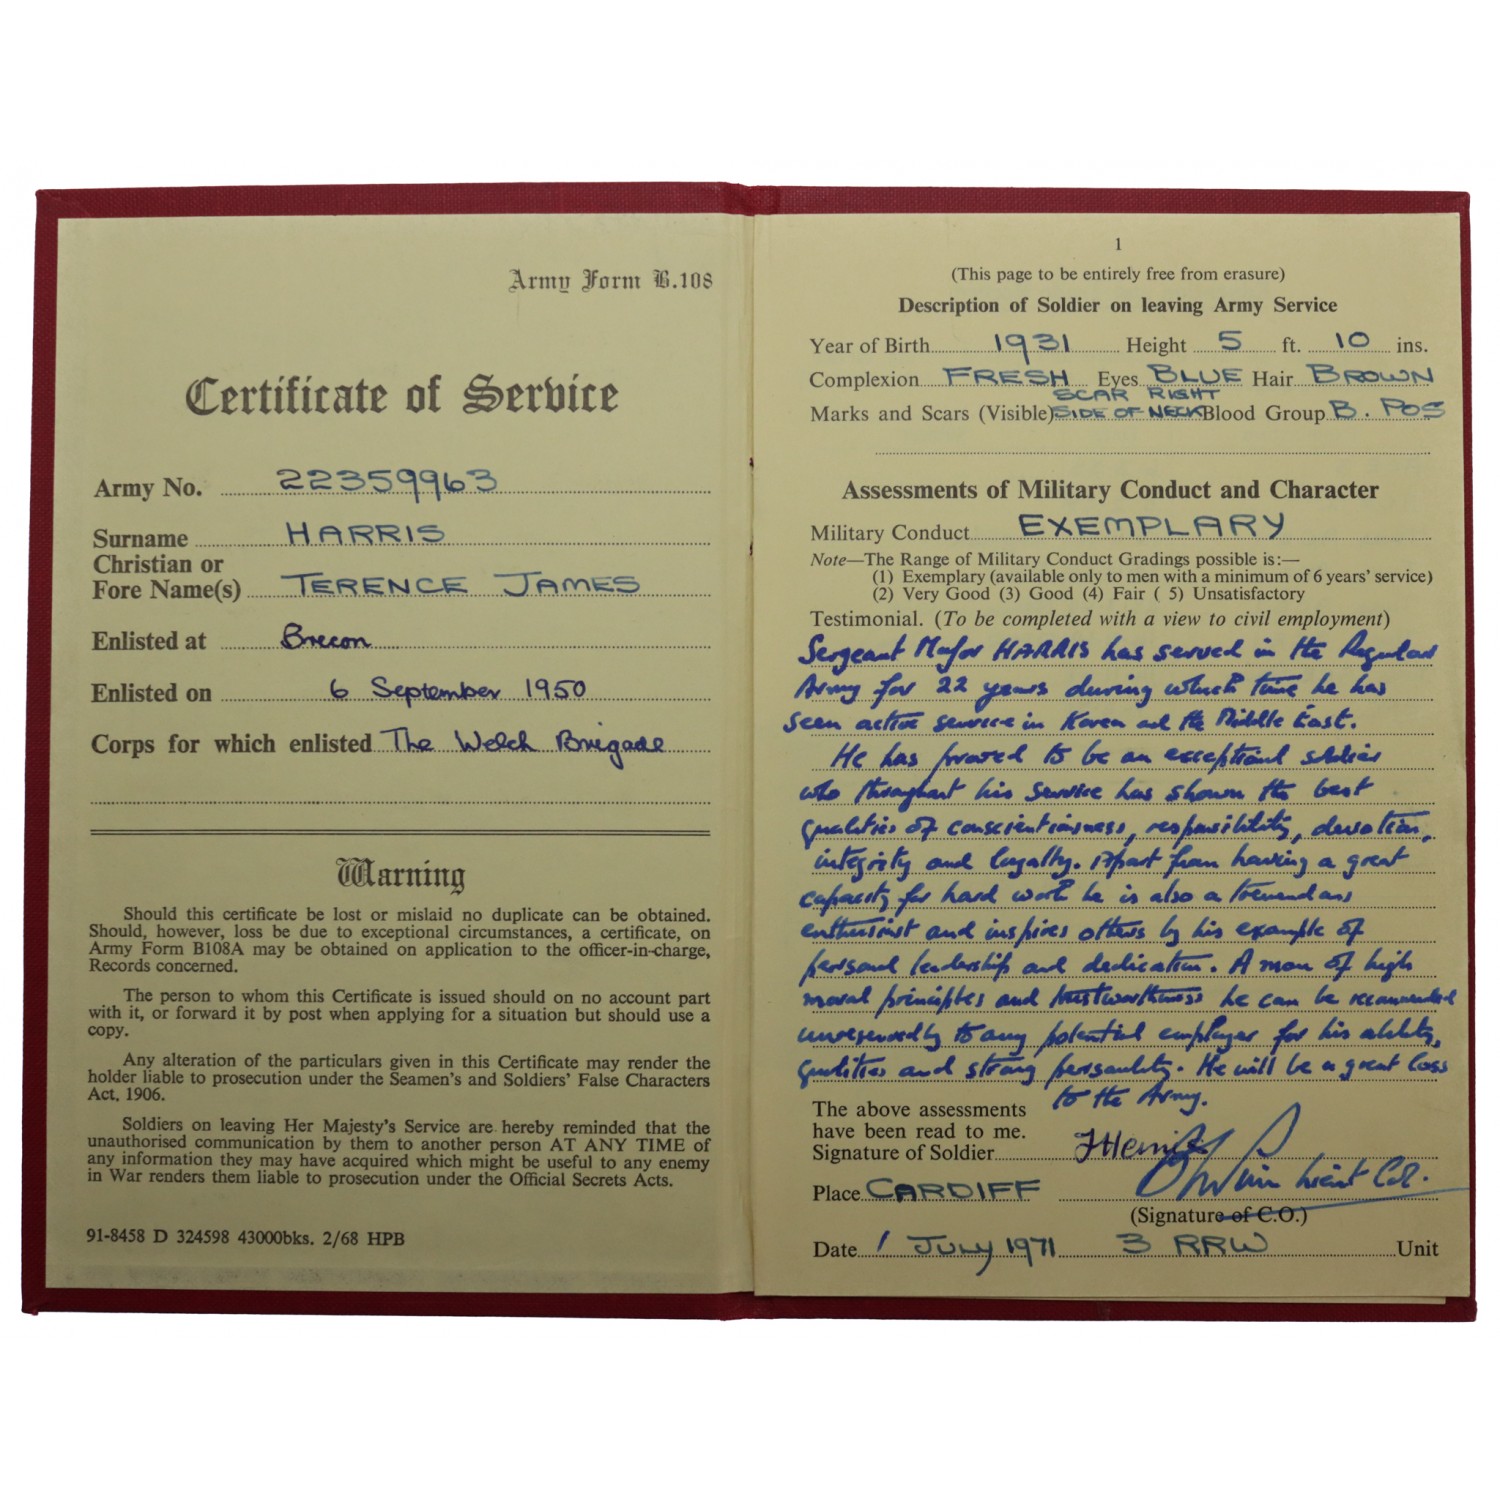 Army Form B.108
Certificate of Service
Army No. 22359963
Surname HARRIS
Christian or
Fore Name(s) TERENCE JAMES
Enlisted at Brecon
Enlisted on 6 September 1950
Corps for which enlisted The Welch Brigade
Warning
Should this certificate be lost or mislaid no duplicate can be obtained.
Should, however, loss be due to exceptional circumstances, a certificate, on
Army Form B108A may be obtained on application to the officer-in-charge,
Records concerned.
The person to whom this Certificate is issued should on no account part
with it, or forward it by post when applying for a situation but should use a
copy.
Any alteration of the particulars given in this Certificate may render the
holder liable to prosecution under the Seamen's and Soldiers' False Characters
Act, 1906.
Soldiers on leaving Her Majesty's Service are hereby reminded that the
unauthorised communication by them to another person AT ANY TIME of
any information they may have acquired which might be useful to any enemy
in War renders them liable to prosecution under the Official Secrets Acts.
91-8458 D 324598 43000bks. 2/68 HPB
1
(This page to be entirely free from erasure)
Description of Soldier on leaving Army Service
Year of Birth 1931 Height 5 ft. 10 ins.
Complexion FRESH Eyes BLUE Hair BROWN
SCAR RIGHT
Marks and Scars (Visible) SIDE OF NECK Blood Group B. POS
Assessments of Military Conduct and Character
Military Conduct EXEMPLARY
Note—The Range of Military Conduct Gradings possible is:—
(1) Exemplary (available only to men with a minimum of 6 years' service)
(2) Very Good (3) Good (4) Fair ( 5) Unsatisfactory
Testimonial. (To be completed with a view to civil employment)
Sergeant Major HARRIS has served in the Regular
Army for 22 years during which time he has
seen active service in Korea and the Middle East.
He has proved to be an exceptional soldier
who throughout his service has shown the best
qualities of conscientiousness, responsibility, devotion,
integrity and loyalty. Apart from having a great
capacity for hard work he is also a tremendous
enthusiast and inspires others by his example of
personal leadership and dedication. A man of high
moral principles and trustworthiness he can be recommended
unreservedly to any potential employer for his ability,
qualities and strong personality. He will be a great loss
to the Army.
The above assessments
have been read to me.
Signature of Soldier
Place CARDIFF Lieut Col.
(Signature of C.O.)
Date 1 JULY 1971 3 RRW Unit